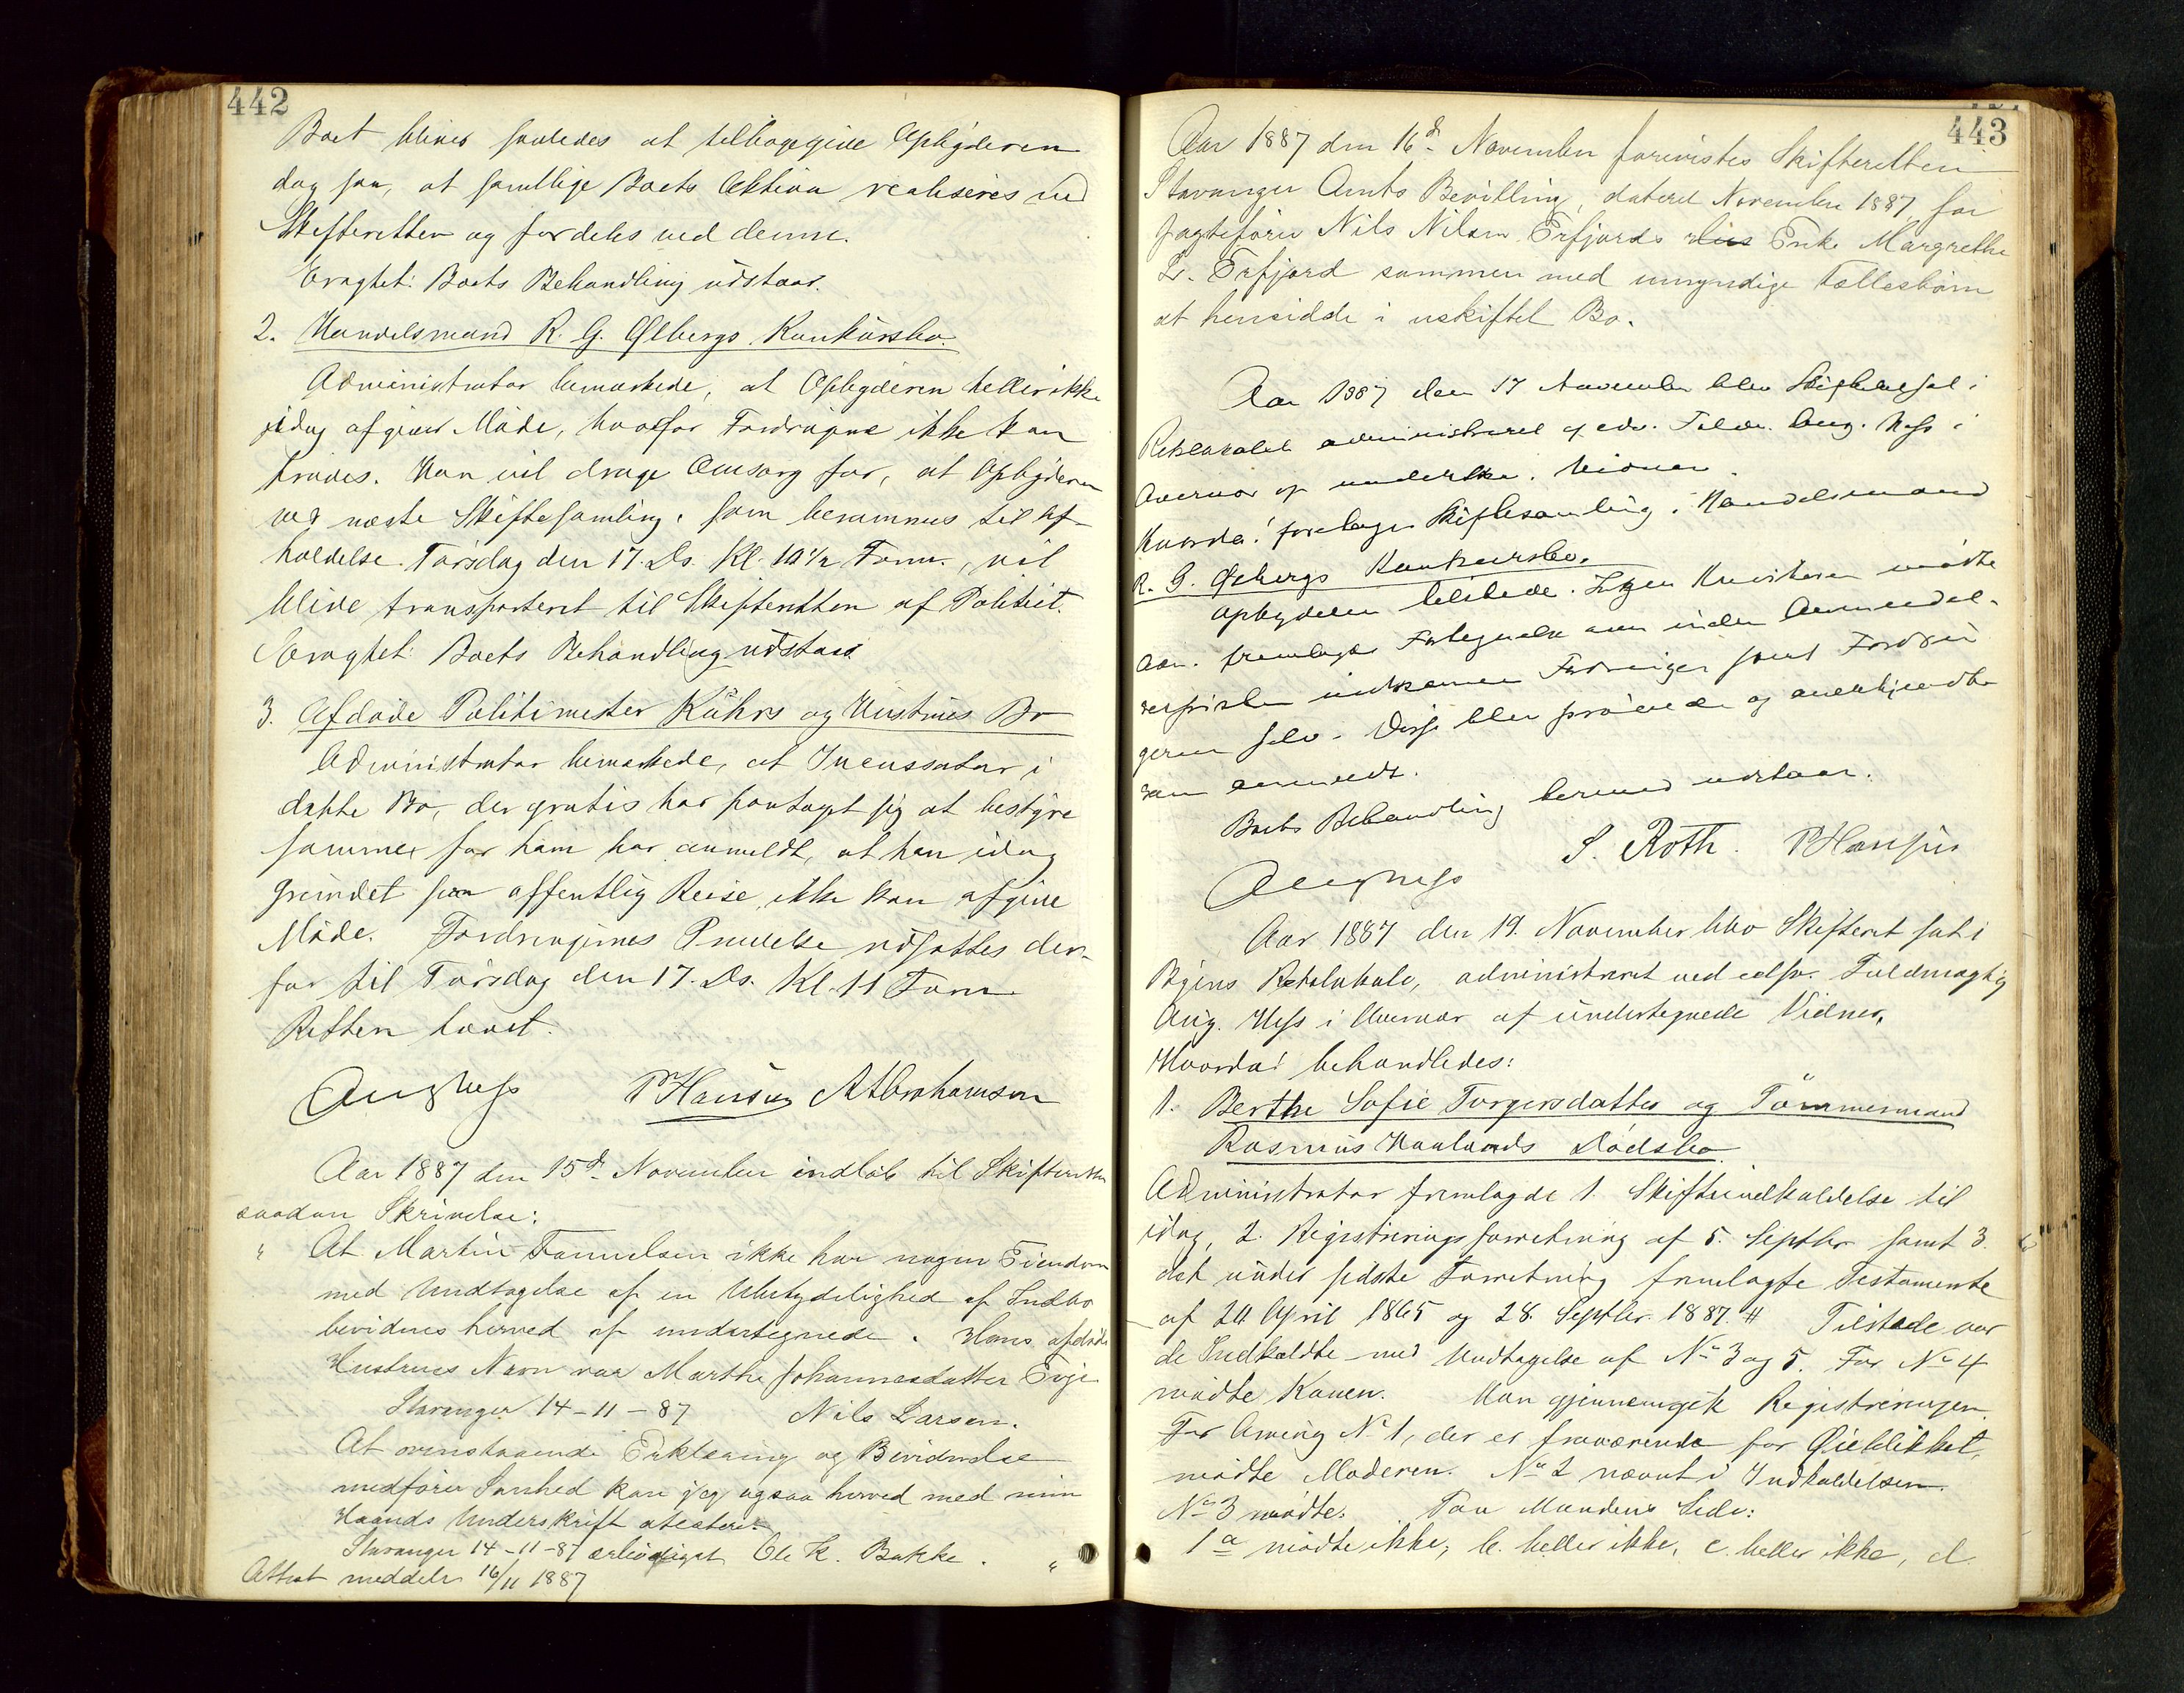 442
Boet bliver saaledes at tilbagegive Opbyderen
dog saa, at samtlige Boets Aktiva realiseres ved
Skifteretten og fordeles ved denne.
Eragtet: Boets Behandling udstaar.
2. Handelsmand R. G. Ølbergs Konkursbo.
Administrator bemærkede, at Opbyderen heller ikke
idag afgiver Møde, hvorfor Fordringerne ikke kan
prøves. Han vil drage Omsorg for, at Opbyderen
ved næste Skiftesamling, som berammes til Af-
holdelse Torsdag den 17. Ds. Kl. 10 1/2 Form., vil
blive transporteret til Skifteretten af Politiet.
Eragtet: Boets Behandling udstaar
3. Afdøde Politimester Kührs og Hustrues Bo
Administrator bemærkede, at Incassator i
dette Bo, der gratis har paataget sig at bestyre
samme, for ham har anmeldt, at han idag
grundet paa offentlig Reise, ikke kan afgive
Møde. Fordringernes Prøvelse udsattes der-
for til Torsdag den 17. Ds. Kl. 11 Form
Retten hævet.
Aug Hess P Hansen A Abrahamsen
Aar 1887 den 15de November indløb til Skifteretten
saadan Skrivelse:
" At Martin Tønnelsen ikke har nogen Eiendom
med Undtagelse af en Ubetydelighed af Indbo
bevidnes herved af undertegnede. Hans afdøde
Hustrues Navn var Marthe Johannesdatter Evje
Stavanger 14-11-87 Nils Larsen.
At ovenstaaende Erklæring og Bevidnelse
medfører Sanhed kan jeg ogsaa herved med min
Haands Underskrift atestere
Stavanger 14-11-87 ærbødigst Ole K. Bakke. "
Attest meddelt 16/11 1887
443
Aar 1887 den 16de November forevistes Skifteretten
Stavanger Amts Bevilling, dateret November 1887, for
Jagtefører Nils Nilsen Erfjords Enke Margrethe
L. Erfjord sammen med umyndige Fællesbørn
at hensidde i uskiftet Bo.
Aar 1887 den 17 November blev Skifteret sat i
Retslokalet administreret af edsv. Fuldm. Aug. Hess i
Overvær af undertegn. Vidner.
Hvorda: foretoges Skiftesamling i Handelsmand
R. G. Ølbergs Konkursbo.
Opbyderen tilstede. Ingen Kreditorer mødte
Adm. fremlagde Fortegnelse over inden Anmeldel-
sesfristen indkomne Fordringer samt Fordrin
gerne selv. Disse blev prøvede og anerkjendte
som anmeldt.
Boets Behandling hermed udstaar.
Aug Hess S. Roth. P Hansen
Aar 1887 den 19. November blev Skifteret sat i
Byens Retslokale, administreret ved edsv. Fuldmægtig
Aug. Hess i Overvær af undertegnede Vidner,
Hvorda behandledes:
1. Berthe Sofie Torgersdatter og Tømmermand
Rasmus Haalands Dødsbo
Administrator fremlagde 1. Skifteindkaldelse til
idag, 2. Registreringsforretning af 5. Septbr samt 3.
det under sidste Forretning fremlagte Testamente
af 24 April 1865 og 28. Septbr. 1887. # Tilstede var
de Indkaldte med Undtagelse af No 3 og 5. For No 4
mødte Konen. Man gjennemgik Registreringen.
For Arving No 1, der er fraværende for Øieblikket,
mødte Moderen. No 2 nævnt i Indkaldelsen.
No 3 mødte. Paa Mandens Side:
1 a mødte ikke, b. heller ikke, c. heller ikke, d